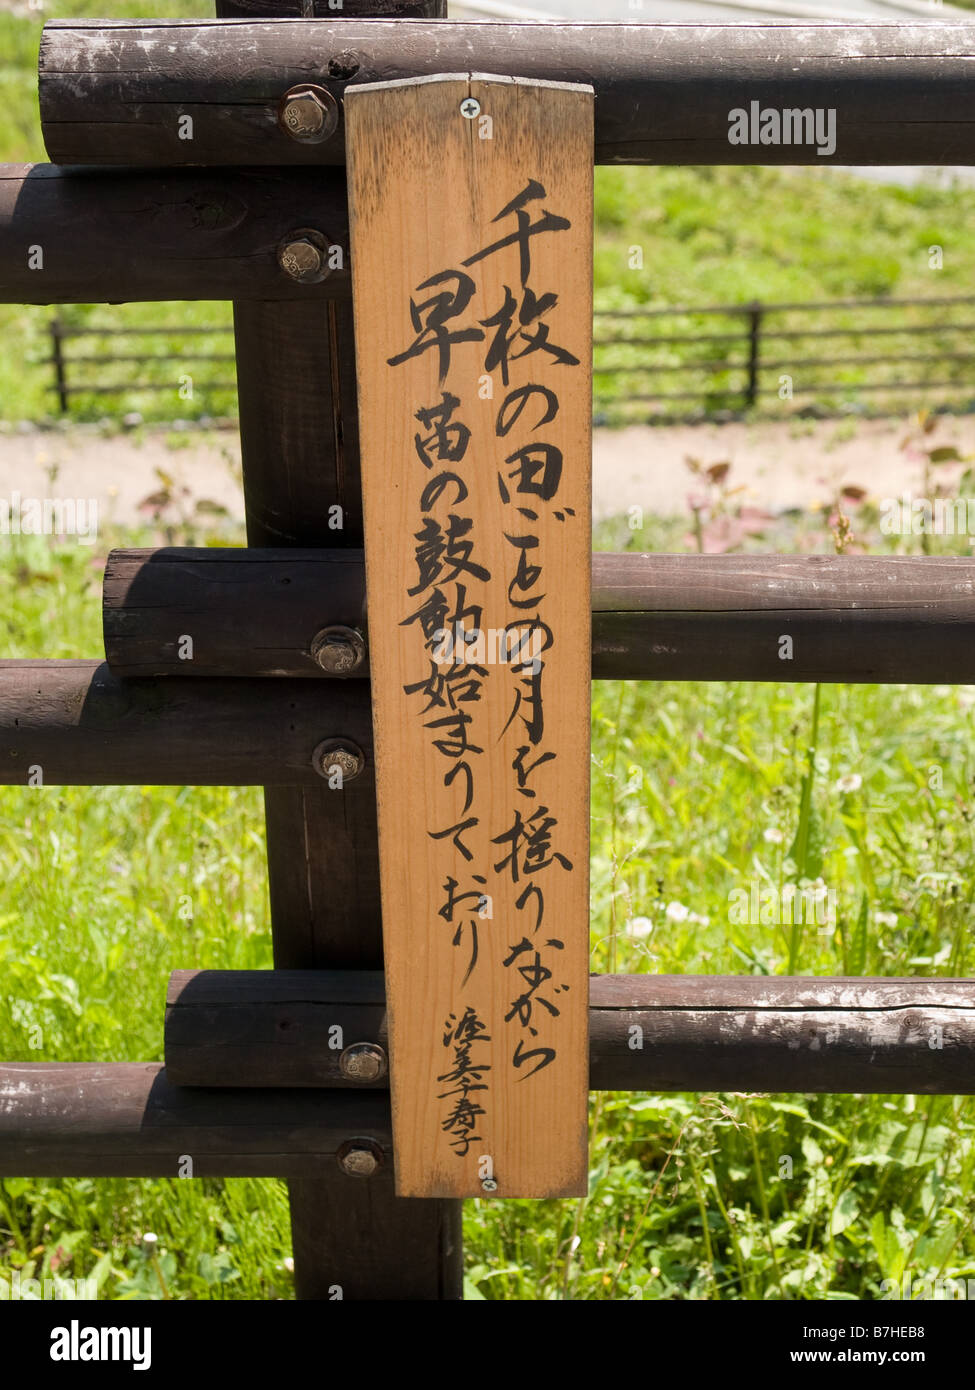 千枚の田ごとの月を揺りながら
早苗の鼓動始まりており
渥美千寿子
alamy
Image ID: B7HEB8
www.alamy.com